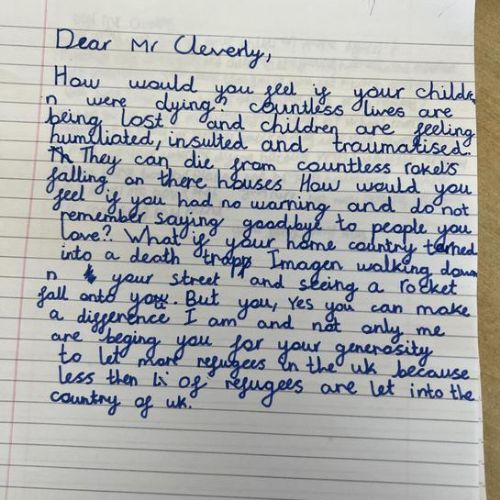 Dear Mr Cleverly,
How would you feel if your childe
n were dying? countless lives are
being lost and children are feeling
humiliated, insulted and traumatised.
They can die from countless rokets
falling on there houses How would you
feel if you had no warning and do not
remember saying goodbye to people you
love? What if your home country turned
into a death trapp Imagen walking down
n your street and seeing a rocket
fall onto you. But you, yes you can make
a difference I am and not only me
are beging you for your generosity
to let more refugees in the uk because
less then 1% of refugees are let into the
country of uk.